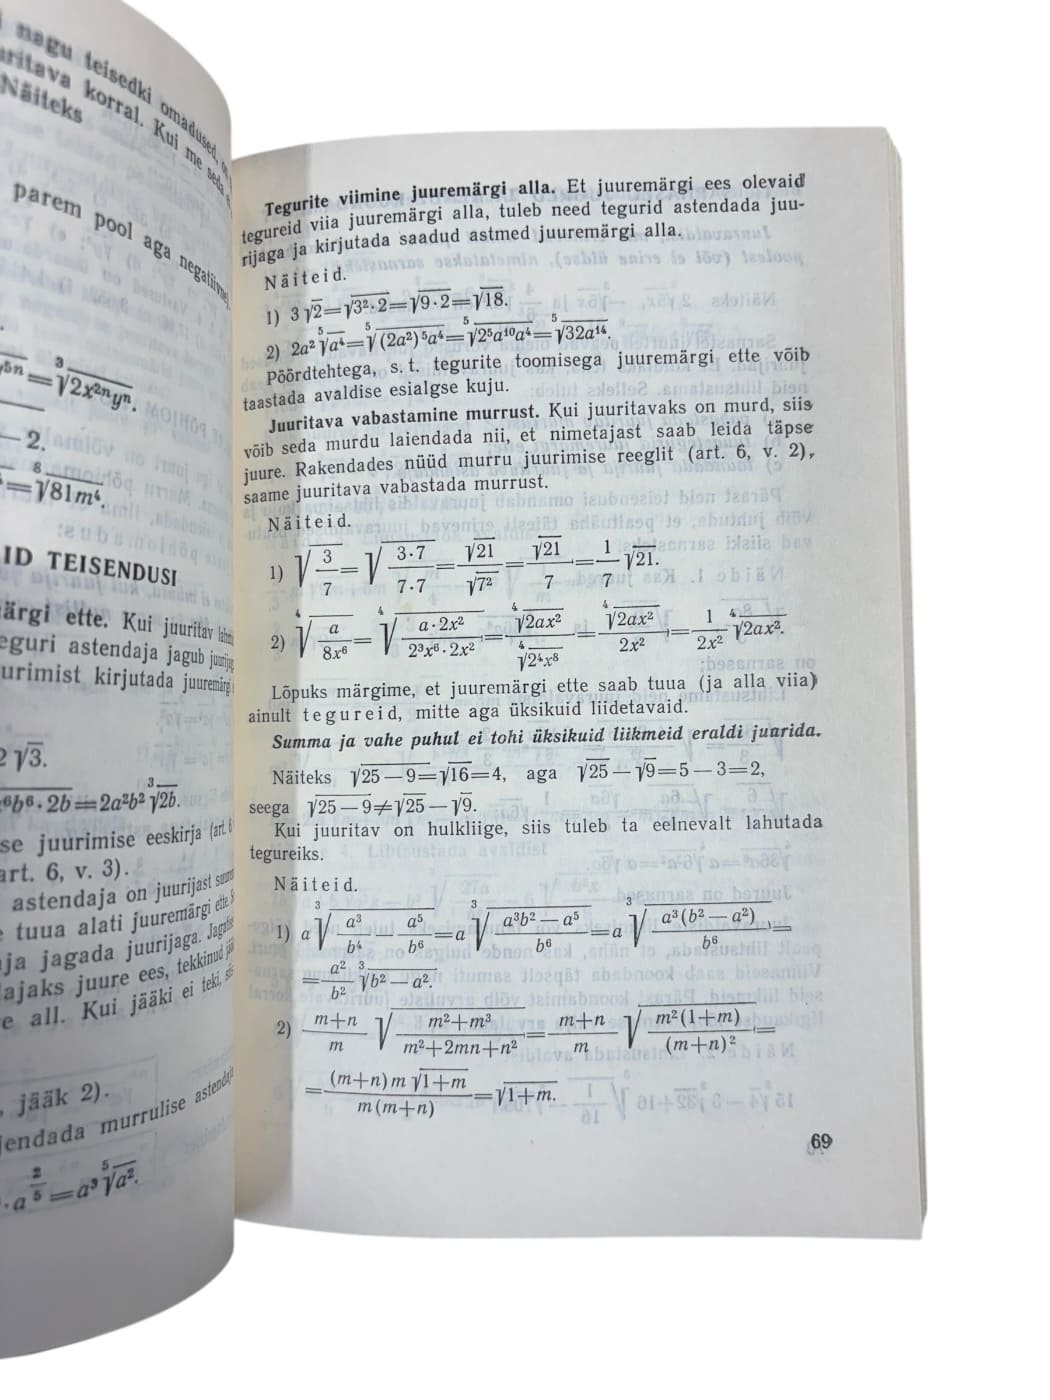 nagu teisedki omadused,
korral. Kui me seda
Näiteks
parem pool aga
= ∛(2x²ⁿyⁿ).
— 2.
= ⁸√(81m⁴).
ID TEISENDUSI
ärgi ette. Kui juuritav
eguri astendaja jagub
urimist kirjutada juuremärgi
2√3.
⁶b⁶ · 2b = 2a²b² ∛(2b).
se juurimise eeskirja (art.
art. 6, v. 3).
astendaja on juurijast
tuua alati juuremärgi ette.
ja jagada juurijaga.
ajaks juure ees, tekkinud
e all. Kui jääki ei teki,
, jääk 2).
endada murrulise
· a^(2/5) = a³ ⁵√(a²).
Tegurite viimine juuremärgi alla. Et juuremärgi ees olevaid
tegureid viia juuremärgi alla, tuleb need tegurid astendada juu-
rijaga ja kirjutada saadud astmed juuremärgi alla.
Näiteid.
1) 3√2 = √(3² · 2) = √(9 · 2) = √18.
2) 2a² ⁵√(a⁴) = ⁵√((2a²)⁵a⁴) = ⁵√(2⁵a¹⁰a⁴) = ⁵√(32a¹⁴).
Pöördtehtega, s. t. tegurite toomisega juuremärgi ette võib
taastada avaldise esialgse kuju.
Juuritava vabastamine murrust. Kui juuritavaks on murd, siis
võib seda murdu laiendada nii, et nimetajast saab leida täpse
juure. Rakendades nüüd murru juurimise reeglit (art. 6, v. 2),
saame juuritava vabastada murrust.
Näiteid.
1) √(3/7) = √((3 · 7)/(7 · 7)) = √21/√(7²) = √21/7 = 1/7 √21.
2) ⁴√(a/(8x⁶)) = ⁴√((a · 2x²)/(2³x⁶ · 2x²)) = ⁴√(2ax²)/⁴√(2⁴x⁸) = ⁴√(2ax²)/(2x²) = 1/(2x²) ⁴√(2ax²).
Lõpuks märgime, et juuremärgi ette saab tuua (ja alla viia)
ainult tegureid, mitte aga üksikuid liidetavaid.
Summa ja vahe puhul ei tohi üksikuid liikmeid eraldi juurida.
Näiteks √(25 — 9) = √16 = 4, aga √25 — √9 = 5 — 3 = 2,
seega √(25 — 9) ≠ √25 — √9.
Kui juuritav on hulkliige, siis tuleb ta eelnevalt lahutada
tegureiks.
Näiteid.
1) a ∛(a³/b⁴ — a⁵/b⁶) = a ∛((a³b² — a⁵)/b⁶) = a ∛((a³(b² — a²))/b⁶) =
= a²/b² ∛(b² — a²).
2) (m+n)/m √((m²+m³)/(m²+2mn+n²)) = (m+n)/m √((m²(1+m))/(m+n)²) =
= ((m+n) m √(1+m))/(m (m+n)) = √(1+m).
69